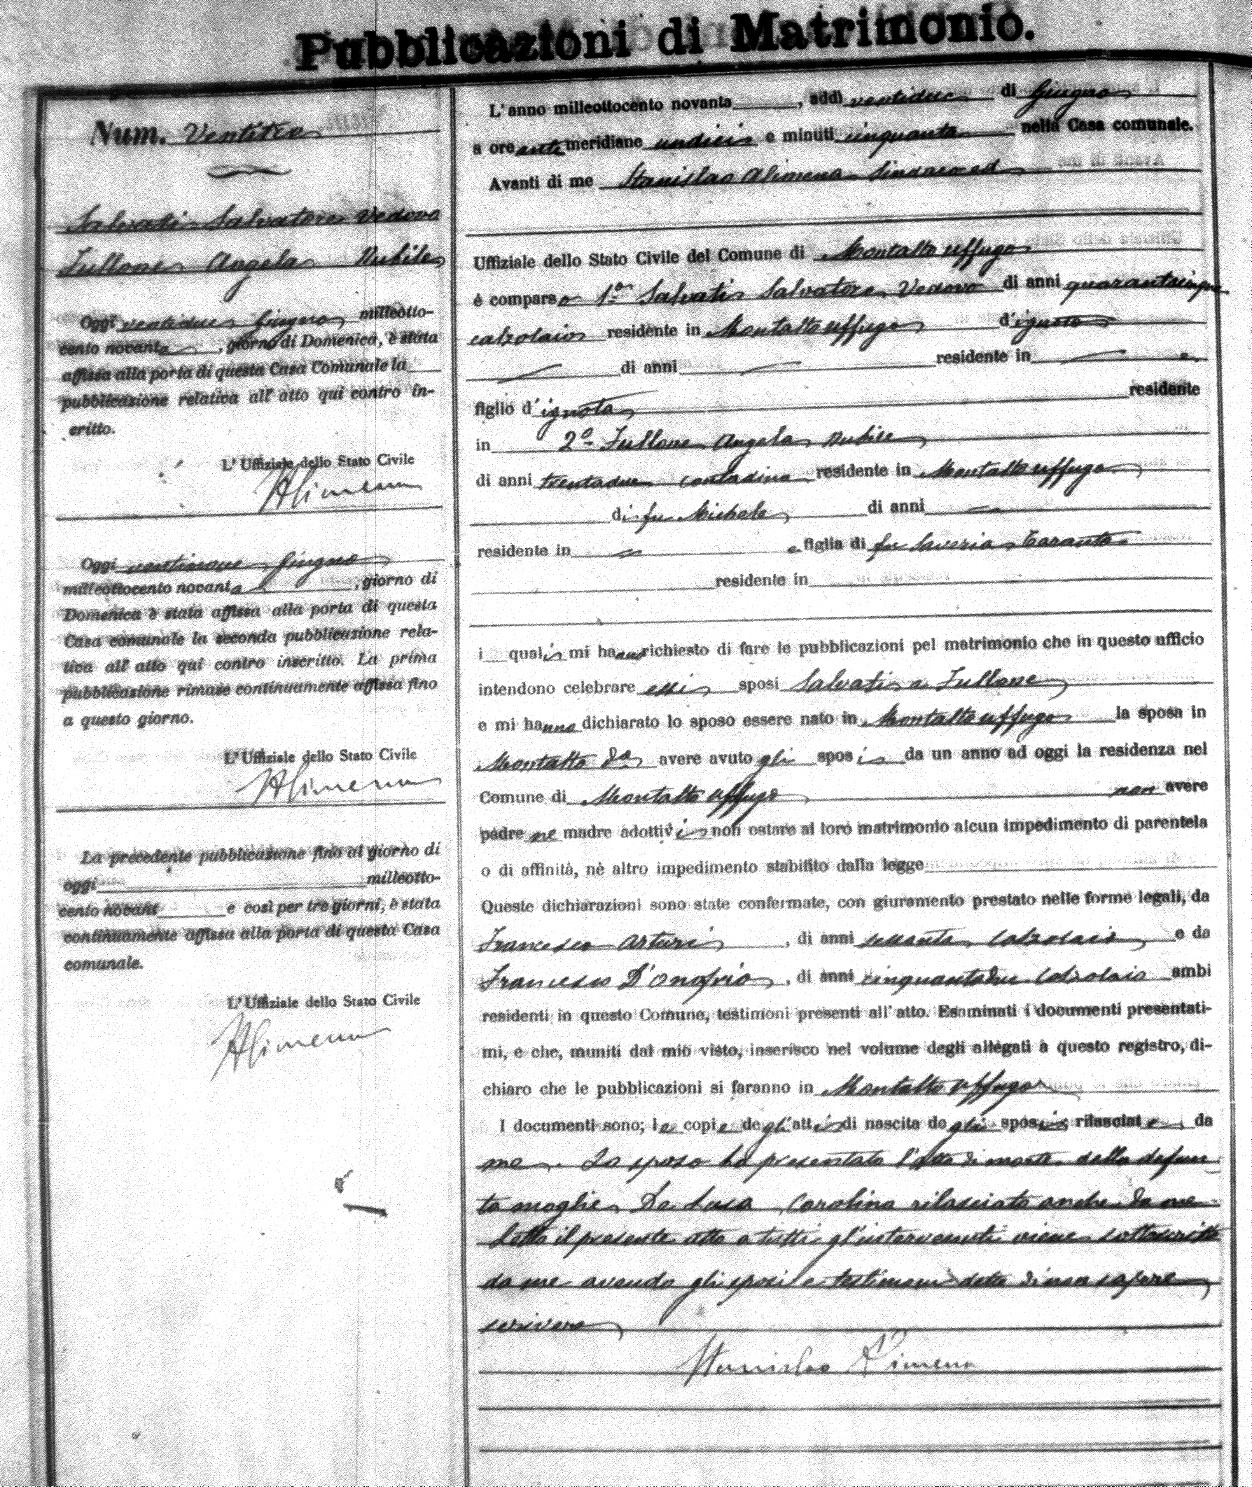 Pubblicazioni di Matrimonio.
Num. Ventitre
Salvati Salvatore Vedovo
Fullone Angela Nubile
Oggi ventidue Giugno milleotto-
cento novanta, giorno di Domenica, è stata
affissa alla porta di questa Casa Comunale la
pubblicazione relativa all'atto qui contro in-
scritto.
L'Uffiziale dello Stato Civile
SAlimena
Oggi ventinove Giugno
milleottocento novanta, giorno di
Domenica è stata affissa alla porta di questa
Casa comunale la seconda pubblicazione rela-
tiva all'atto qui contro inscritto. La prima
pubblicazione rimase continuamente affissa fino
a questo giorno.
L'Uffiziale dello Stato Civile
SAlimena
La precedente pubblicazione fino al giorno di
oggi milleotto-
cento novant e così per tre giorni, è stata
continuamente affissa alla porta di questa Casa
comunale.
L'Uffiziale dello Stato Civile
SAlimena
L'anno milleottocento novanta, addì ventidue di Giugno
a ore antimeridiane undici e minuti cinquanta nella Casa comunale.
Avanti di me Stanislao Alimena Sindaco ed
Uffiziale dello Stato Civile del Comune di Montalto Uffugo
è comparso 1° Salvati Salvatore Vedovo di anni quarantacinque
calzolaio residente in Montalto uffugo d'ignoto
di anni residente in e
figlio d'ignota residente
in 2° Fullone Angela Nubile
di anni trentadue contadina residente in Montalto uffugo
di fu Michele di anni
residente in e figlia di fu Saveria Taranto
residente in
i quali mi hanno richiesto di fare le pubblicazioni pel matrimonio che in questo ufficio
intendono celebrare essi sposi Salvati e Fullone
e mi hanno dichiarato lo sposo essere nato in Montalto uffugo la sposa in
Montalto avere avuto gli sposi da un anno ad oggi la residenza nel
Comune di Montalto uffugo non avere
padre ne madre adottivi non ostare al loro matrimonio alcun impedimento di parentela
o di affinità, nè altro impedimento stabilito dalla legge
Queste dichiarazioni sono state confermate, con giuramento prestato nelle forme legali, da
Francesco Arturi, di anni sessanta, calzolaio e da
Francesco D'Onofrio, di anni cinquantadue calzolaio ambi
residenti in questo Comune, testimoni presenti all'atto. Esaminati i documenti presentati-
mi, e che, muniti dal mio visto, inserisco nel volume degli allegati a questo registro, di-
chiaro che le pubblicazioni si faranno in Montalto uffugo
I documenti sono; le copie degli atti di nascita degli sposi; rilasciate da
me. Lo sposo ha presentato l'atto di morte della defun
ta moglie De Luca Carolina rilasciato anche da me
Letto il presente atto a tutti gl'intervenuti viene sottoscritto
da me avendo gli sposi e testimoni detto di non sapere
scrivere
Stanislao Alimena